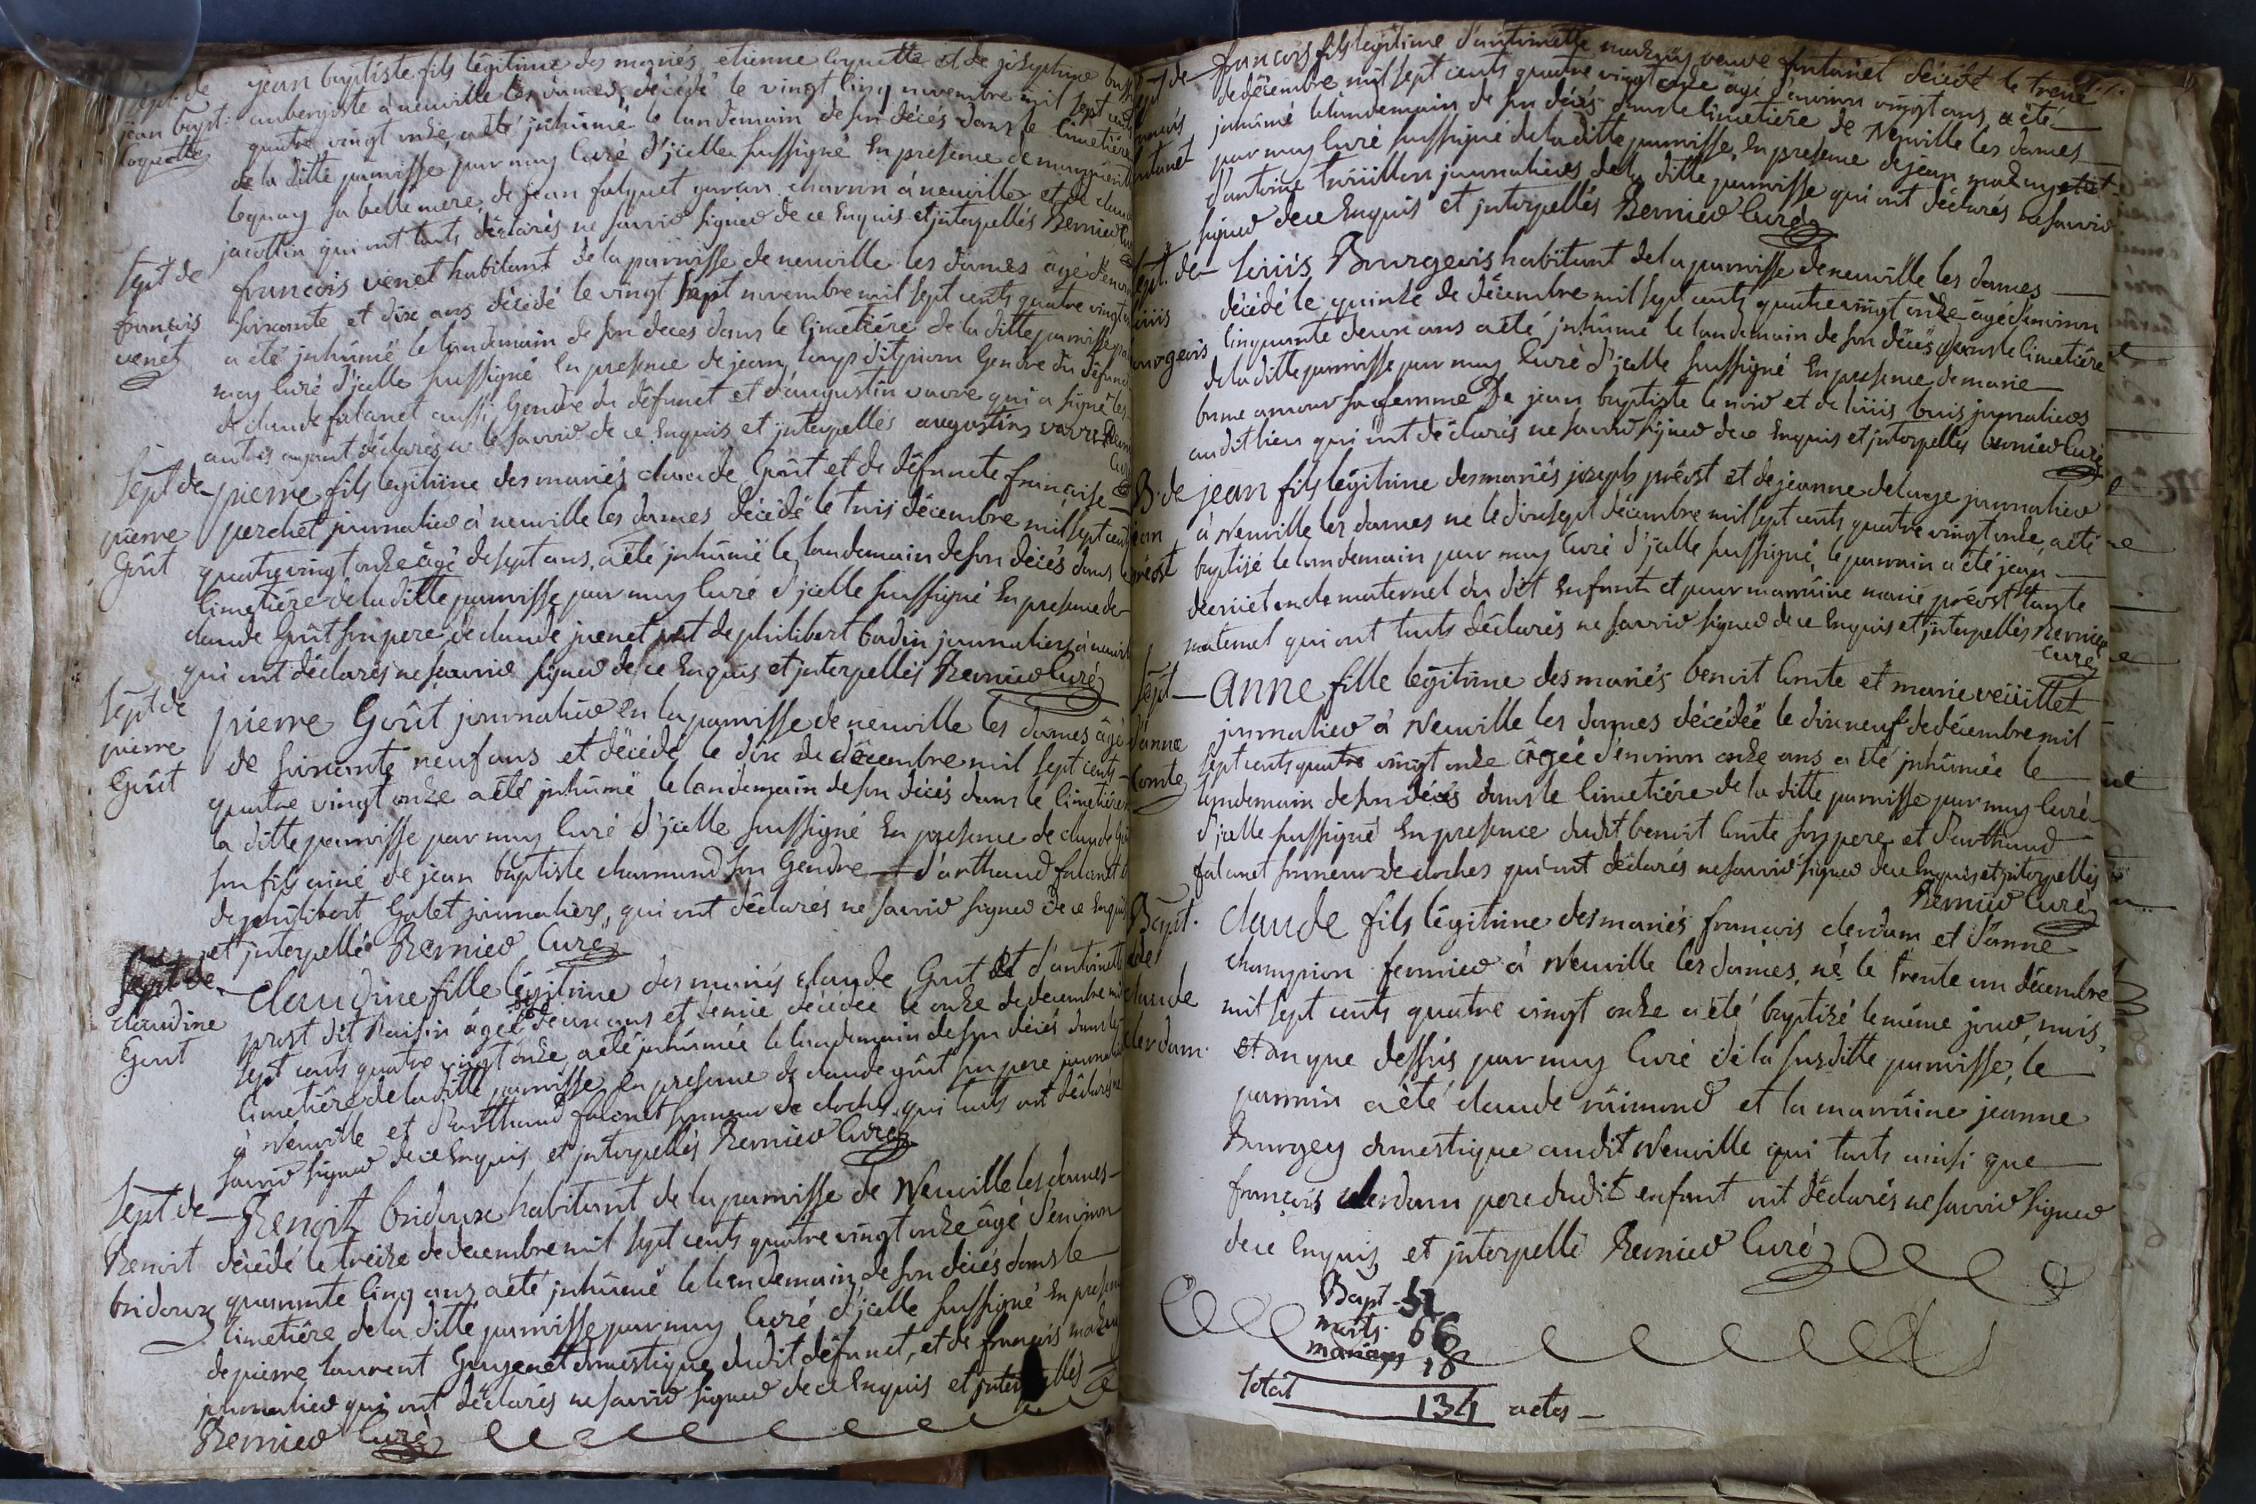 sept. de jean baptiste fils légitime des mariés etienne loquette et de josephine
jean bapt. aubergiste à neuville les dames, décédé le vingt cinq novembre mil sept cents
loquette quatre vingt onze, a été inhumé le landemain de son décès dans le cimetière
de la ditte parroisse par moy curé d'jcelle sussigné En presence de
loquay sa belle mere, de jean falquet garan charron à neuville et de claude
jacottin qui ont touts déclarés ne savoir signer de ce Enquis et jnterpellés Bernier curé
sept de francois venet habitant de la parroisse de neuville les dames âgé d'environ
francois soixante et dix ans décédé le vingt sept novembre mil sept cents quatre vingt
venet a été jnhumé le landemain de son deces dans le cimetière de la ditte parroisse par
moy curé d'jcelle sussigné En presence de jean loup dit pion Gendre du défunct
de claude falanet aussi Gendre du défunct et d'augustin vavre qui a signé les
autres ayant déclarés ne le savoir de ce Enquis et jnterpellés augustin vavre Bernier
curé
sept de pierre fils légitime des mariés claude Goût et de défuncte françoise
pierre perchet journalier à neuville les dames décédé le trois décembre mil sept cents
Goût quatre vingt onze âgé de sept ans, a été jnhumé le landemain de son décès dans le
cimetière de la ditte parroisse par moy curé d'jcelle sussigné En presence de
claude Goût son pere, de claude juenet et de philibert badin journaliers à neuville
qui ont déclarés ne savoir signer de ce Enquis et jnterpellés Bernier Curé
sept de pierre Goût journalier en la parroisse de neuville les dames âgé
pierre de soixante neuf ans et décédé le dix de décembre mil sept cents
Goût quatre vingt onze a été jnhumé le landemain de son décès dans le cimetière
la ditte parroisse par moy curé d'jcelle sussigné En presence de claude Goût
son fils ainé de jean baptiste charmond son Gendre d'arthaud falanet
de philibert Galet journaliers, qui ont déclarés ne savoir signer de ce Enquis
et jnterpellés Bernier Curé
Sept de Claudine fille légitime des mariés claude Gout et d'antoinette
claudine prost dit Raisin âgée de un ans et demie décédée le onze de decembre mil
Gout sept cents quatre vingt onze a été jnhumée le landemain de son décès dans le
cimetière de la ditte parroisse, en presence de claude goût son pere journalier
à Neuville et d'arthaud falanet sonneur de cloches qui touts ont déclarés ne
savoir signer de ce Enquis et jnterpellés Bernier Curé
sept de Benoit bridoux habitant de la parroisse de Neuville les dames
Benoit décédé le treize de decembre mil sept cents quatre vingt onze âgé d'environ
bridoux quarante cinq ans a été jnhumé le landemain de son décès dans le
cimetière de la ditte parroisse par moy curé d'jcelle sussigné En presence
de pierre laurent Goyenet domestique dudit défunct, et de françois
journalier qui ont déclarés ne savoir signer de ce Enquis et jnterpellés
Bernier Curé
sept de francois fils légitime d'antoinette veuve fontanet décédé le treize
francois de décembre mil sept cents quatre vingt onze âgé d'environ vingt ans, a été
fontanet jnhumé le landemain de son décès dans le cimetière de Neuville les dames
par moy curé sussigné de la ditte parroisse, En presence de jean et
d'antoine journaliers de la ditte parroisse qui ont déclarés ne savoir
signer de ce Enquis et jnterpellés Bernier Curé
sept. de Louis Bourgeois habitant de la parroisse de neuville les dames
louis décédé le quinze de décembre mil sept cents quatre vingt onze âgé d'environ
bourgeois cinquante deux ans a été jnhumé le landemain de son décès dans le cimetière
de la ditte parroisse par moy curé d'jcelle sussigné En presence de marie
bonne amour sa femme De jean baptiste le noir et de louis buis journaliers
audit lieu qui ont déclarés ne savoir signer de ce Enquis et jnterpellés bernier Curé
B. de jean fils légitime des mariés joseph prévost et de jeanne delorge journalier
jean à Neuville les dames né le dix sept décembre mil sept cents quatre vingt onze, a été
prévost baptisé le landemain par moy curé d'jcelle sussigné, le parrain a été jean
oncle maternel du dit Enfant et pour marraine marie prévost sa tante
maternel qui ont touts déclarés ne savoir signer de ce Enquis et jnterpellés Bernier
Curé
Sept Anne fille légitime des mariés benoit Comte et marie veuillet
d'anne journalier à Neuville les dames décédée le dix neuf de décembre mil
Comte sept cents quatre vingt onze âgée d'environ onze ans a été jnhumée le
landemain de son décès dans le cimetière de la ditte parroisse par moy curé
d'jcelle sussigné En presence dudit benoit Comte son pere et d'arthaud
falanet sonneur de cloches qui ont déclarés ne savoir signer de ce Enquis et jnterpellés
Bernier Curé
Bapt. Claude fils légitime des mariés francois clerdam et d'anne
de champion fermier à Neuville les dames, né le trente un décembre
claude mil sept cents quatre vingt onze a été baptisé le même jour, mois,
clerdam. et an que dessus par moy curé de la susditte parroisse, le
parrain a été claude raimond et la marraine jeanne
Bourgey domestique audit Neuville qui touts ainsi que
françois clerdam pere dudit enfant ont déclarés ne savoir signer
de ce Enquis et jnterpellé Bernier Curé
Bapt. 51
morts. 66
mariages 18
total 134 actes